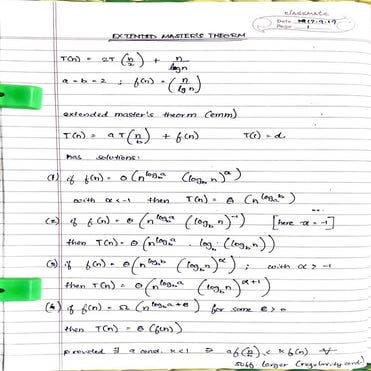 classmate
Date 17.9.17
Page 1
EXTENTED MASTER'S THEORM
T(n) = 2T(n/2) + n/log n
a = b = 2 ; f(n) = (n/lg n)
extended master's theorm (emm)
T(n) = aT(n/b) + f(n) T(1) = d.
has solutions:
(1) if f(n) = O(n^log_b a (log_b n)^α)
with α < -1 then T(n) = θ(n^log_a b)
(2) if f(n) = θ(n^log_b a (log_b n)^-1) [here α = -1]
then T(n) = θ(n^log_b a . log_b (log_b n))
(3) if f(n) = θ(n^log_a b (log_b n)^α) ; with α > -1
then T(n) = θ(n^log_b a (log_b n)^α+1)
(4) if f(n) = Ω(n^log_b a + e) for some e > 0
then T(n) = θ(f(n))
provided ∃ a const. K < 1 ∋ af(n/b) < K f(n) ∀
suff larger (regularity cond.)